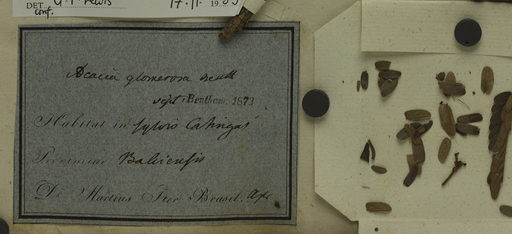 DET. G. P. Lewis 17. 11. 19
conf.
Acacia glomerosa Benth
sept. Bentham. 1873
Habitat in sylvis Catingas
Provinciae Bahiensis
D. Martius Iter Brasil.